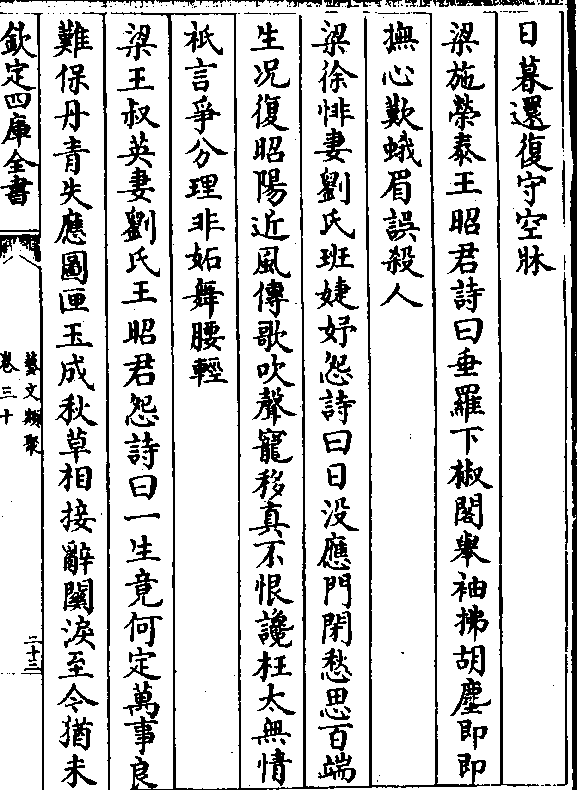 日暮還復守空牀
梁施榮泰王昭君詩曰垂羅下椒閣舉袖拂胡塵即即
撫心歎蛾眉誤殺人
梁徐悱妻劉氏班婕妤怨詩曰日没應門閉愁思百端
生况復昭陽近風傳歌吹聲寵移真不恨讒枉太無情
秖言爭分理非妬舞腰輕
梁王叔英妻劉氏王昭君怨詩曰一生竟何定萬事良
難保丹青失應圖匣玉成秋草相接辭關淚至今猶未
欽定四庫全書
藝文類聚
卷三十
二十三